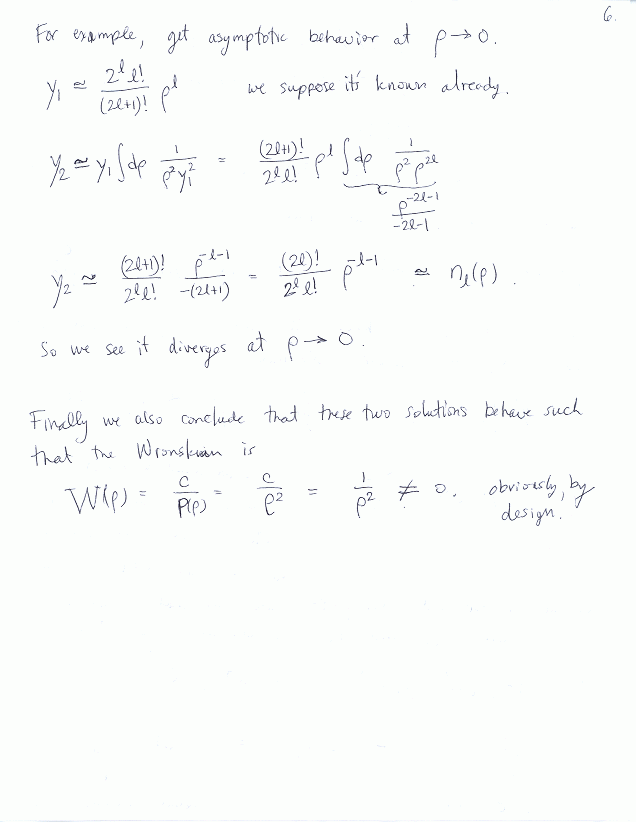 6.
For example, get asymptotic behavior at ρ→0.
y₁ ≃ 2^l l! / (2l+1)! ρ^l we suppose it's known already.
y₂ ≃ y₁ ∫dρ 1/(ρ² y₁²) = (2l+1)!/(2^l l!) ρ^l ∫dρ 1/(ρ² ρ^{2l})
ρ^{-2l-1} / -2l-1
y₂ ≃ (2l+1)!/(2^l l!) ρ^{-l-1}/-(2l+1) = (2l)!/(2^l l!) ρ^{-l-1} ≃ n_l(ρ).
So we see it diverges at ρ→0.
Finally we also conclude that these two solutions behave such
that the Wronskian is
W(ρ) = C/P(ρ) = C/ρ² = 1/ρ² ≠ 0. obviously, by
design.